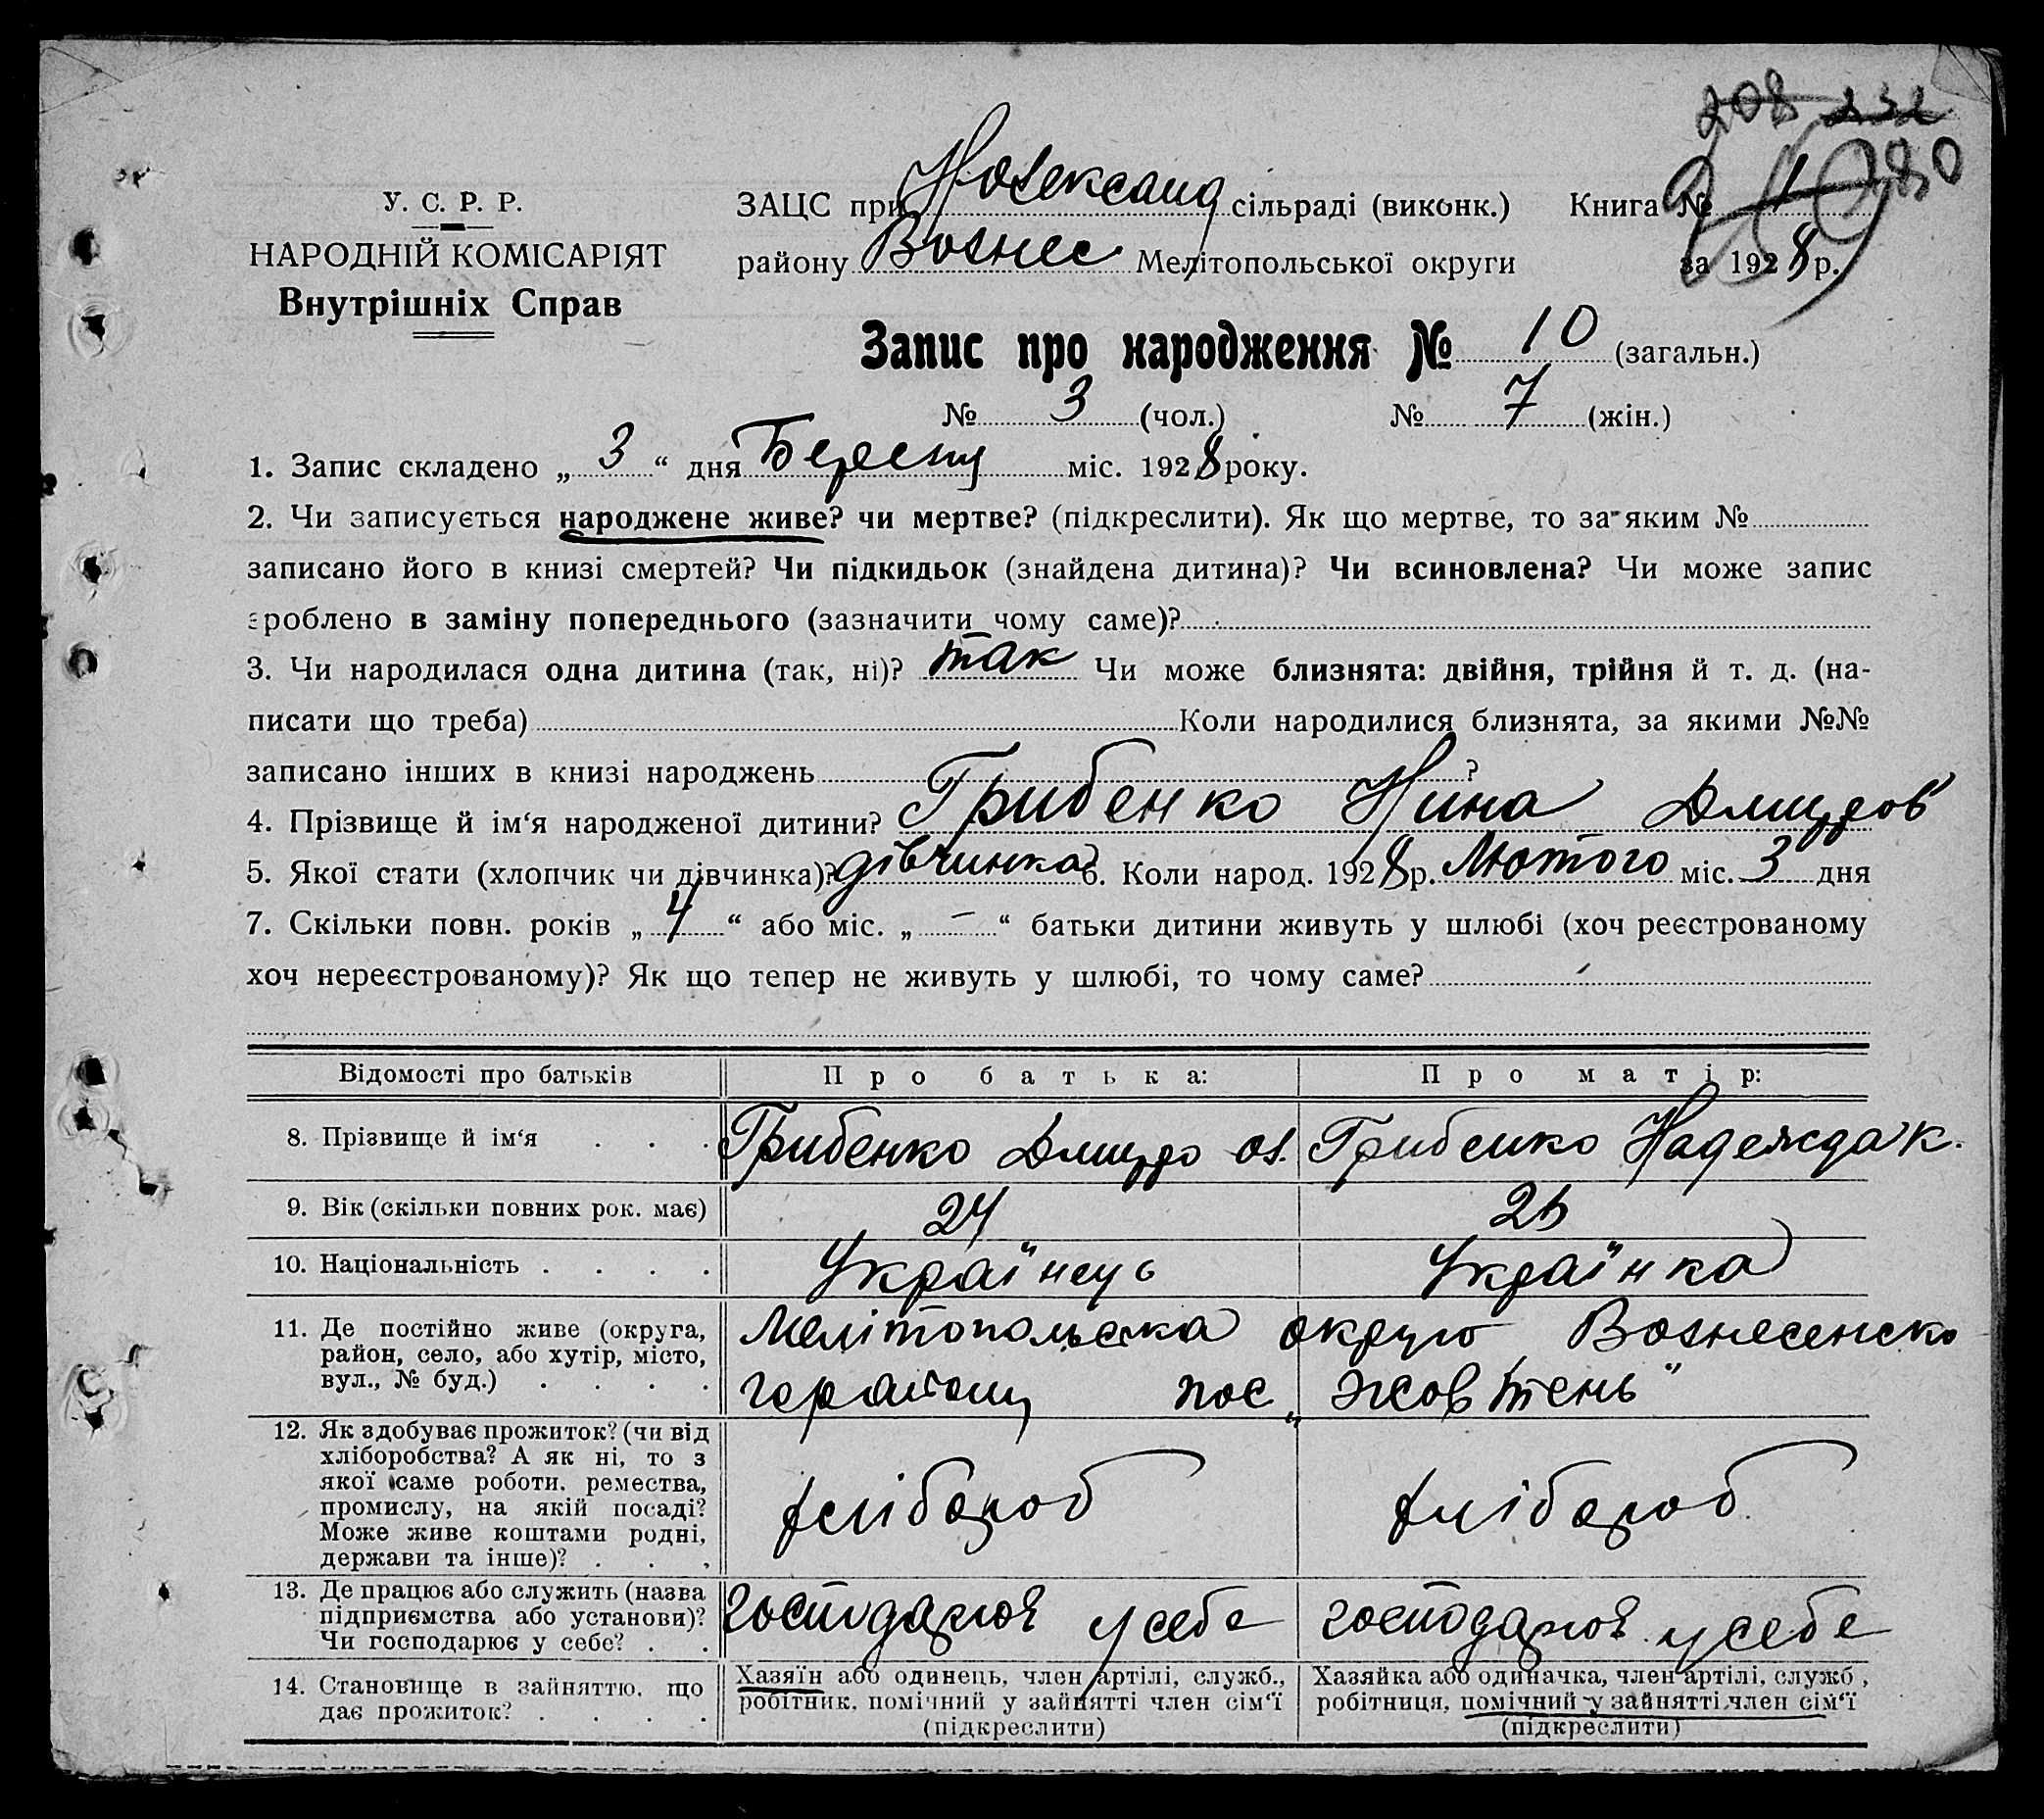 208 232
280
У. С. Р. Р.
НАРОДНІЙ КОМІСАРІЯТ
Внутрішніх Справ
ЗАЦС при сільраді (виконк.) Книга № 1
району Вознес Мелітопольської округи за 1928 р.
Запис про народження № 10 (загальн.)
№ 3 (чол.) № 7 (жін.)
1. Запис складено „ 3 “ дня Березну міс. 1928 року.
2. Чи записується народжене живе? чи мертве? (підкреслити). Як що мертве, то за яким №
записано його в книзі смертей? Чи підкидьок (знайдена дитина)? Чи всиновлена? Чи може запис
зроблено в заміну попереднього (зазначити чому саме)?
3. Чи народилася одна дитина (так, ні)? так Чи може близнята: двійня, трійня й т. д. (на-
писати що треба) Коли народилися близнята, за якими №№
записано інших в книзі народжень ?
4. Прізвище й ім‘я народженої дитини? Грибенко Нина Дмитров
5. Якої стати (хлопчик чи дівчинка)? дівчинка 6. Коли народ. 1928 р. Лютого міс. 3 дня
7. Скільки повн. років „ 4 “ або міс. „ – “ батьки дитини живуть у шлюбі (хоч реєстрованому
хоч нереєстрованому)? Як що тепер не живуть у шлюбі, то чому саме?
Відомості про батьків Про батька: Про матір:
8. Прізвище й ім‘я Грибенко Дмитро Ол. Грибенко Надежда К.
9. Вік (скільки повних рок. має) 24 26
10. Національність Українець Українка
11. Де постійно живе (округа,
район, село, або хутір, місто,
вул., № буд.)
Мелітопольська округо Вознесенско
го району пос. „Жовтень“
12. Як здобуває прожиток? (чи від
хліборобства? А як ні, то з
якої саме роботи, ремества,
промислу, на якій посаді?
Може живе коштами родні,
держави та інше)?
хлібороб хлібороб
13. Де працює або служить (назва
підприємства або установи)?
Чи господарює у себе?
господарює у себе господарює у себе
14. Становище в зайняттю, що
дає прожиток?
Хазяїн або одинець, член артілі, служб.,
робітник, помічний у зайнятті член сім‘ї
(підкреслити)
Хазяйка або одиначка, член артілі, служб.,
робітниця, помічний у зайнятті член сім‘ї
(підкреслити)